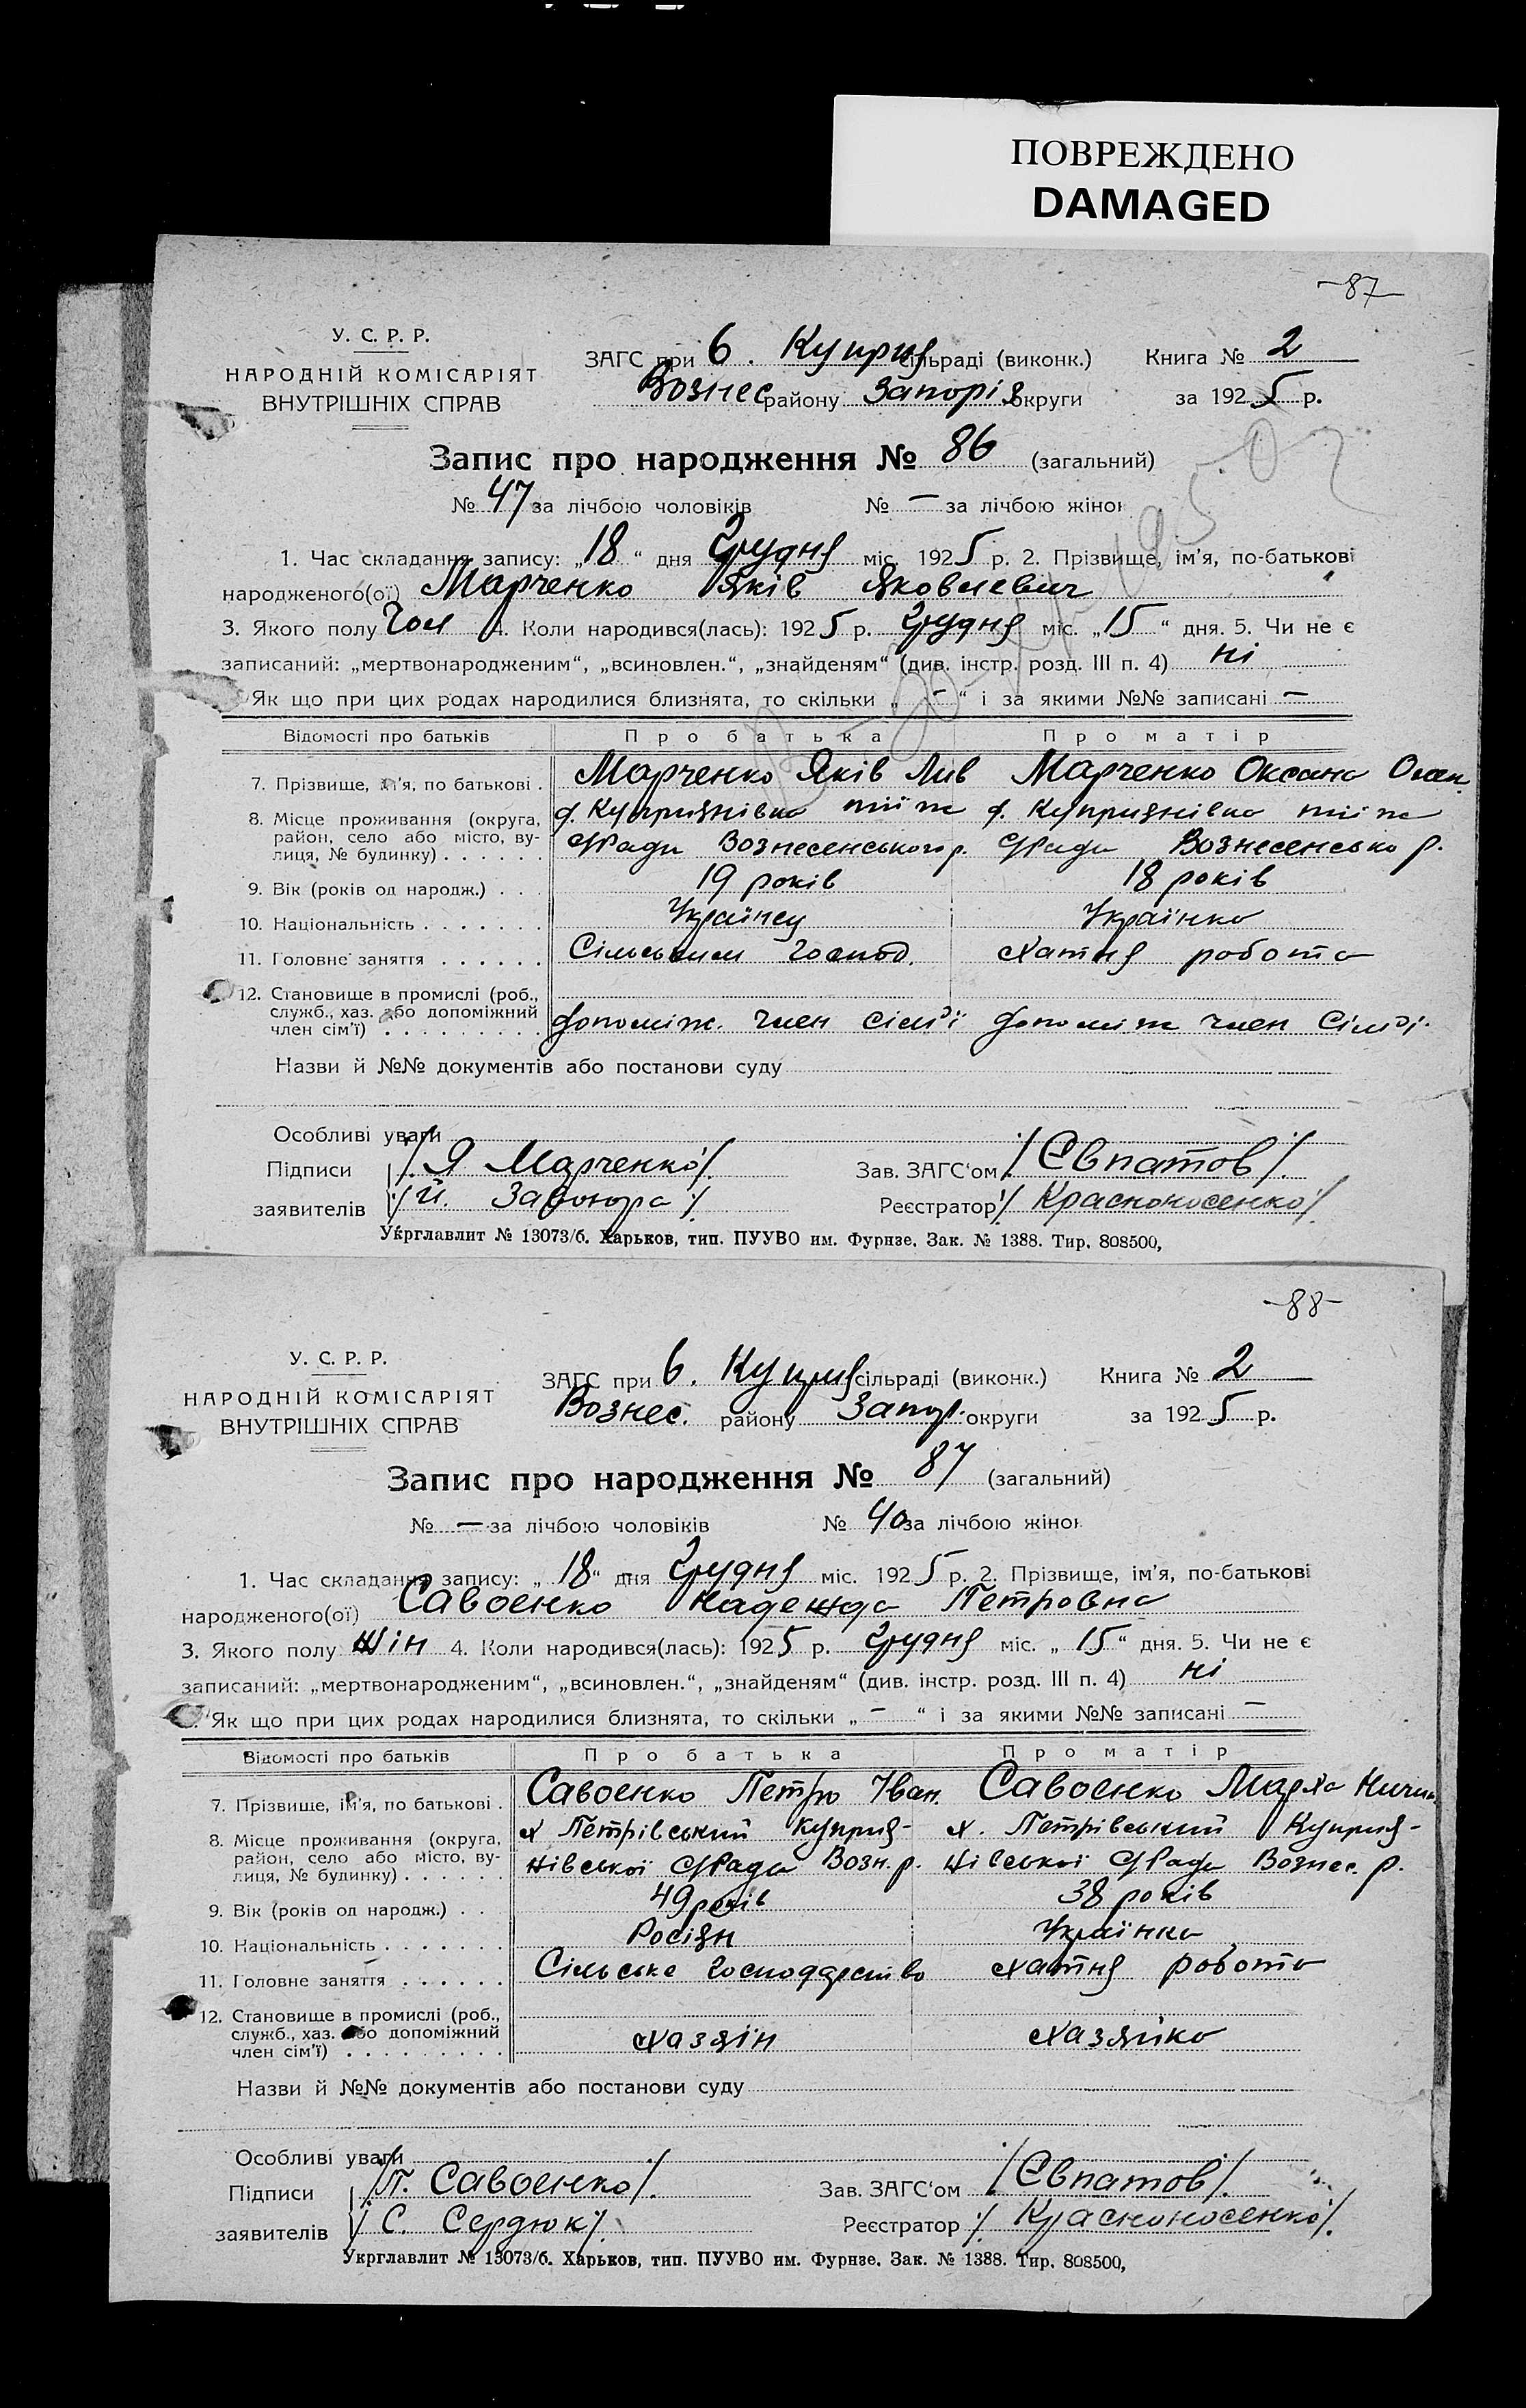 ПОВРЕЖДЕНО
DAMAGED
-87-
У. С. Р. Р.
НАРОДНІЙ КОМІСАРІЯТ
ВНУТРІШНІХ СПРАВ
ЗАГС при б. Куприя сільраді (виконк.) Книга № 2
Вознес району Запорі округи за 1925 р.
Запис про народження № 86 (загальний)
№ 47 за лічбою чоловіків № — за лічбою жінок
1. Час складання запису: „18“ дня Грудня міс. 1925 р. 2. Прізвище, ім’я, по-батькові
народженого(ої) Марченко Яків Яковлевич
3. Якого полу Чол 4. Коли народився(лась): 1925 р. Грудня міс. „15“ дня. 5. Чи не є
записаний: „мертвонародженим“, „всиновлен.“, „знайденям“ (див. інстр. розд. III п. 4) ні
Як що при цих родах народилися близнята, то скільки „ — “ і за якими №№ записані —
Відомості про батьків Про батька Про матір
7. Прізвище, ім’я, по батькові . Марченко Яків Марченко Оксана
8. Місце проживання (округа, район, село або місто, вулиця, № будинку) . . . . . . Куприянівка тіїж Куприянівка тіїж
с/Ради Вознесенського р. с/Ради Вознесенсько р.
9. Вік (років од народж.) . . . 19 років 18 років
10. Національність . . . . . . . Українец Українка
11. Головне заняття . . . . . . Сільським господ. Хатня робота
12. Становище в промислі (роб., служб., хаз. або допоміжний член сім’ї) . . . . . . . . . допоміж. член сім'ї допоміж член сім'ї
Назви й №№ документів або постанови суду
Особливі уваги
Підписи /Я Марченко/. Зав. ЗАГС‘ом /Євпатов/.
заявителів Реєстратор /Красноносенко/.
Укрглавлит № 13073/б. Харьков, тип. ПУУВО им. Фурнзе. Зак. № 1388. Тир. 808500,
-88-
У. С. Р. Р.
НАРОДНІЙ КОМІСАРІЯТ
ВНУТРІШНІХ СПРАВ
ЗАГС при б. Куприя сільраді (виконк.) Книга № 2
Вознес. району Запор. округи за 1925 р.
Запис про народження № 87 (загальний)
№ — за лічбою чоловіків № 40 за лічбою жінок
1. Час складання запису: „18“ дня Грудня міс. 1925 р. 2. Прізвище, ім’я, по-батькові
народженого(ої) Савоенко Надежда Петровна
3. Якого полу Жін 4. Коли народився(лась): 1925 р. Грудня міс. „15“ дня. 5. Чи не є
записаний: „мертвонародженим“, „всиновлен.“, „знайденям“ (див. інстр. розд. III п. 4) ні
Як що при цих родах народилися близнята, то скільки „ — “ і за якими №№ записані —
Відомості про батьків Про батька Про матір
7. Прізвище, ім’я, по батькові . Савоенко Петро Іван. Савоенко
8. Місце проживання (округа, район, село або місто, вулиця, № будинку) . . . . . . х Петрівський Куприя- х. Петрівський Куприя-
нівської с/Ради Возн. р. нівської с/Ради Вознес. р.
9. Вік (років од народж.) . . 49 років 38 років
10. Національність . . . . . . . Росіян Українка
11. Головне заняття . . . . . . Сільське господарство Хатня робота
12. Становище в промислі (роб., служб., хаз. або допоміжний член сім’ї) . . . . . . . . . Хазяін Хазяйка
Назви й №№ документів або постанови суду
Особливі уваги
Підписи /П. Савоенко/. Зав. ЗАГС‘ом /Євпатов/.
заявителів / С. Сердюк/. Реєстратор /Красноносенко/.
Укрглавлит № 13073/б. Харьков, тип. ПУУВО им. Фурнзе. Зак. № 1388. Тир. 808500,